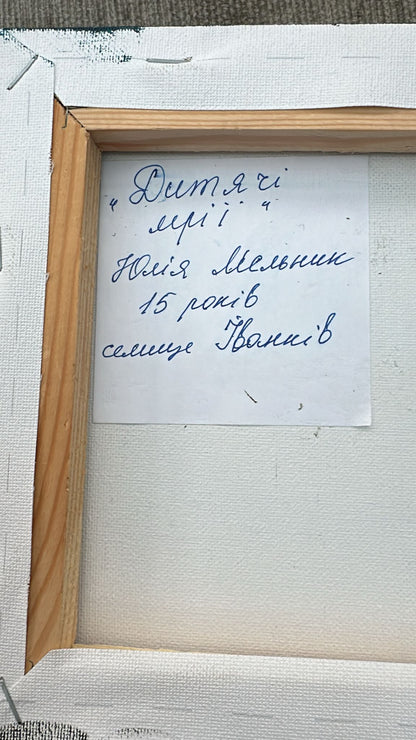 "Дитячі
мрії"
Юлія Мельник
15 років
селище Іванків